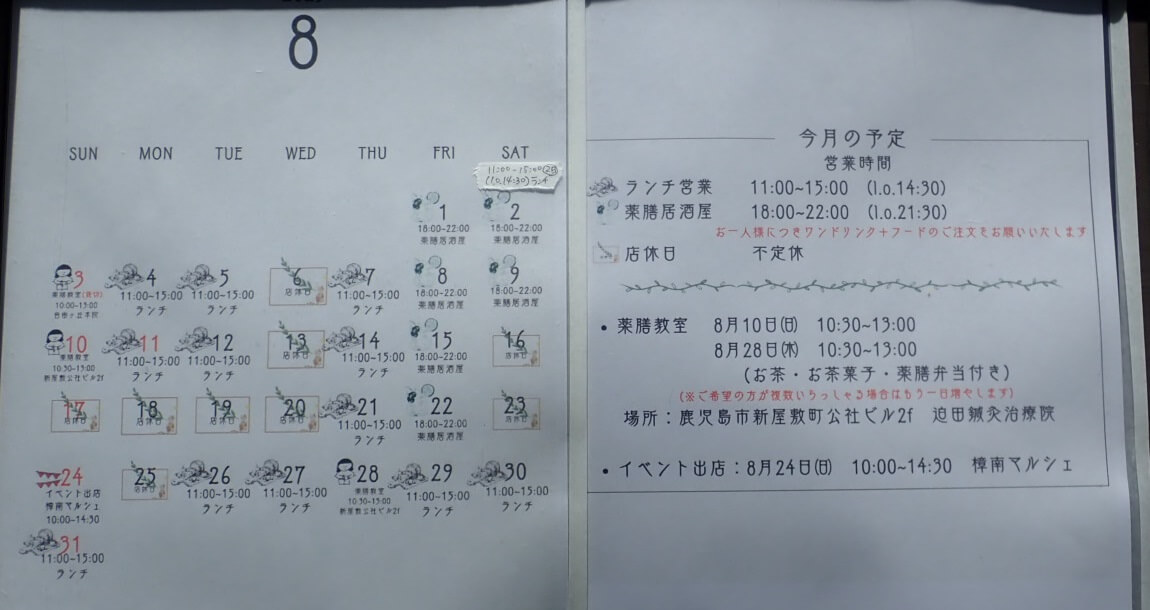 8
SUN MON TUE WED THU FRI SAT
11:00-15:00
(l.o.14:30)ランチ
1 2
18:00-22:00 18:00-22:00
薬膳居酒屋 薬膳居酒屋
3 4 5 6 7 8 9
薬膳教室 11:00-15:00 11:00-15:00 店休日 11:00-15:00 18:00-22:00 18:00-22:00
10:00-13:00 ランチ ランチ ランチ 薬膳居酒屋 薬膳居酒屋
10 11 12 13 14 15 16
薬膳教室 11:00-15:00 11:00-15:00 店休日 11:00-15:00 18:00-22:00 店休日
10:30-13:00 ランチ ランチ ランチ 薬膳居酒屋
新屋敷公社ビル2f
17 18 19 20 21 22 23
店休日 店休日 店休日 店休日 11:00-15:00 18:00-22:00 店休日
ランチ 薬膳居酒屋
24 25 26 27 28 29 30
イベント出店 店休日 11:00-15:00 11:00-15:00 薬膳教室 11:00-15:00 11:00-15:00
樟南マルシェ ランチ ランチ 10:30-13:00 ランチ ランチ
10:00-14:30 新屋敷公社ビル2f
31
11:00-15:00
ランチ
今月の予定
営業時間
ランチ営業 11:00~15:00 (l.o.14:30)
薬膳居酒屋 18:00~22:00 (l.o.21:30)
お一人様につきワンドリンク+フードのご注文をお願いいたします
店休日 不定休
• 薬膳教室 8月10日(日) 10:30~13:00
8月28日(木) 10:30~13:00
(お茶・お茶菓子・薬膳弁当付き)
(※ご希望の方が複数いらっしゃる場合はもう一日増やします)
場所：鹿児島市新屋敷町公社ビル2f 迫田鍼灸治療院
• イベント出店：8月24日(日) 10:00~14:30 樟南マルシェ